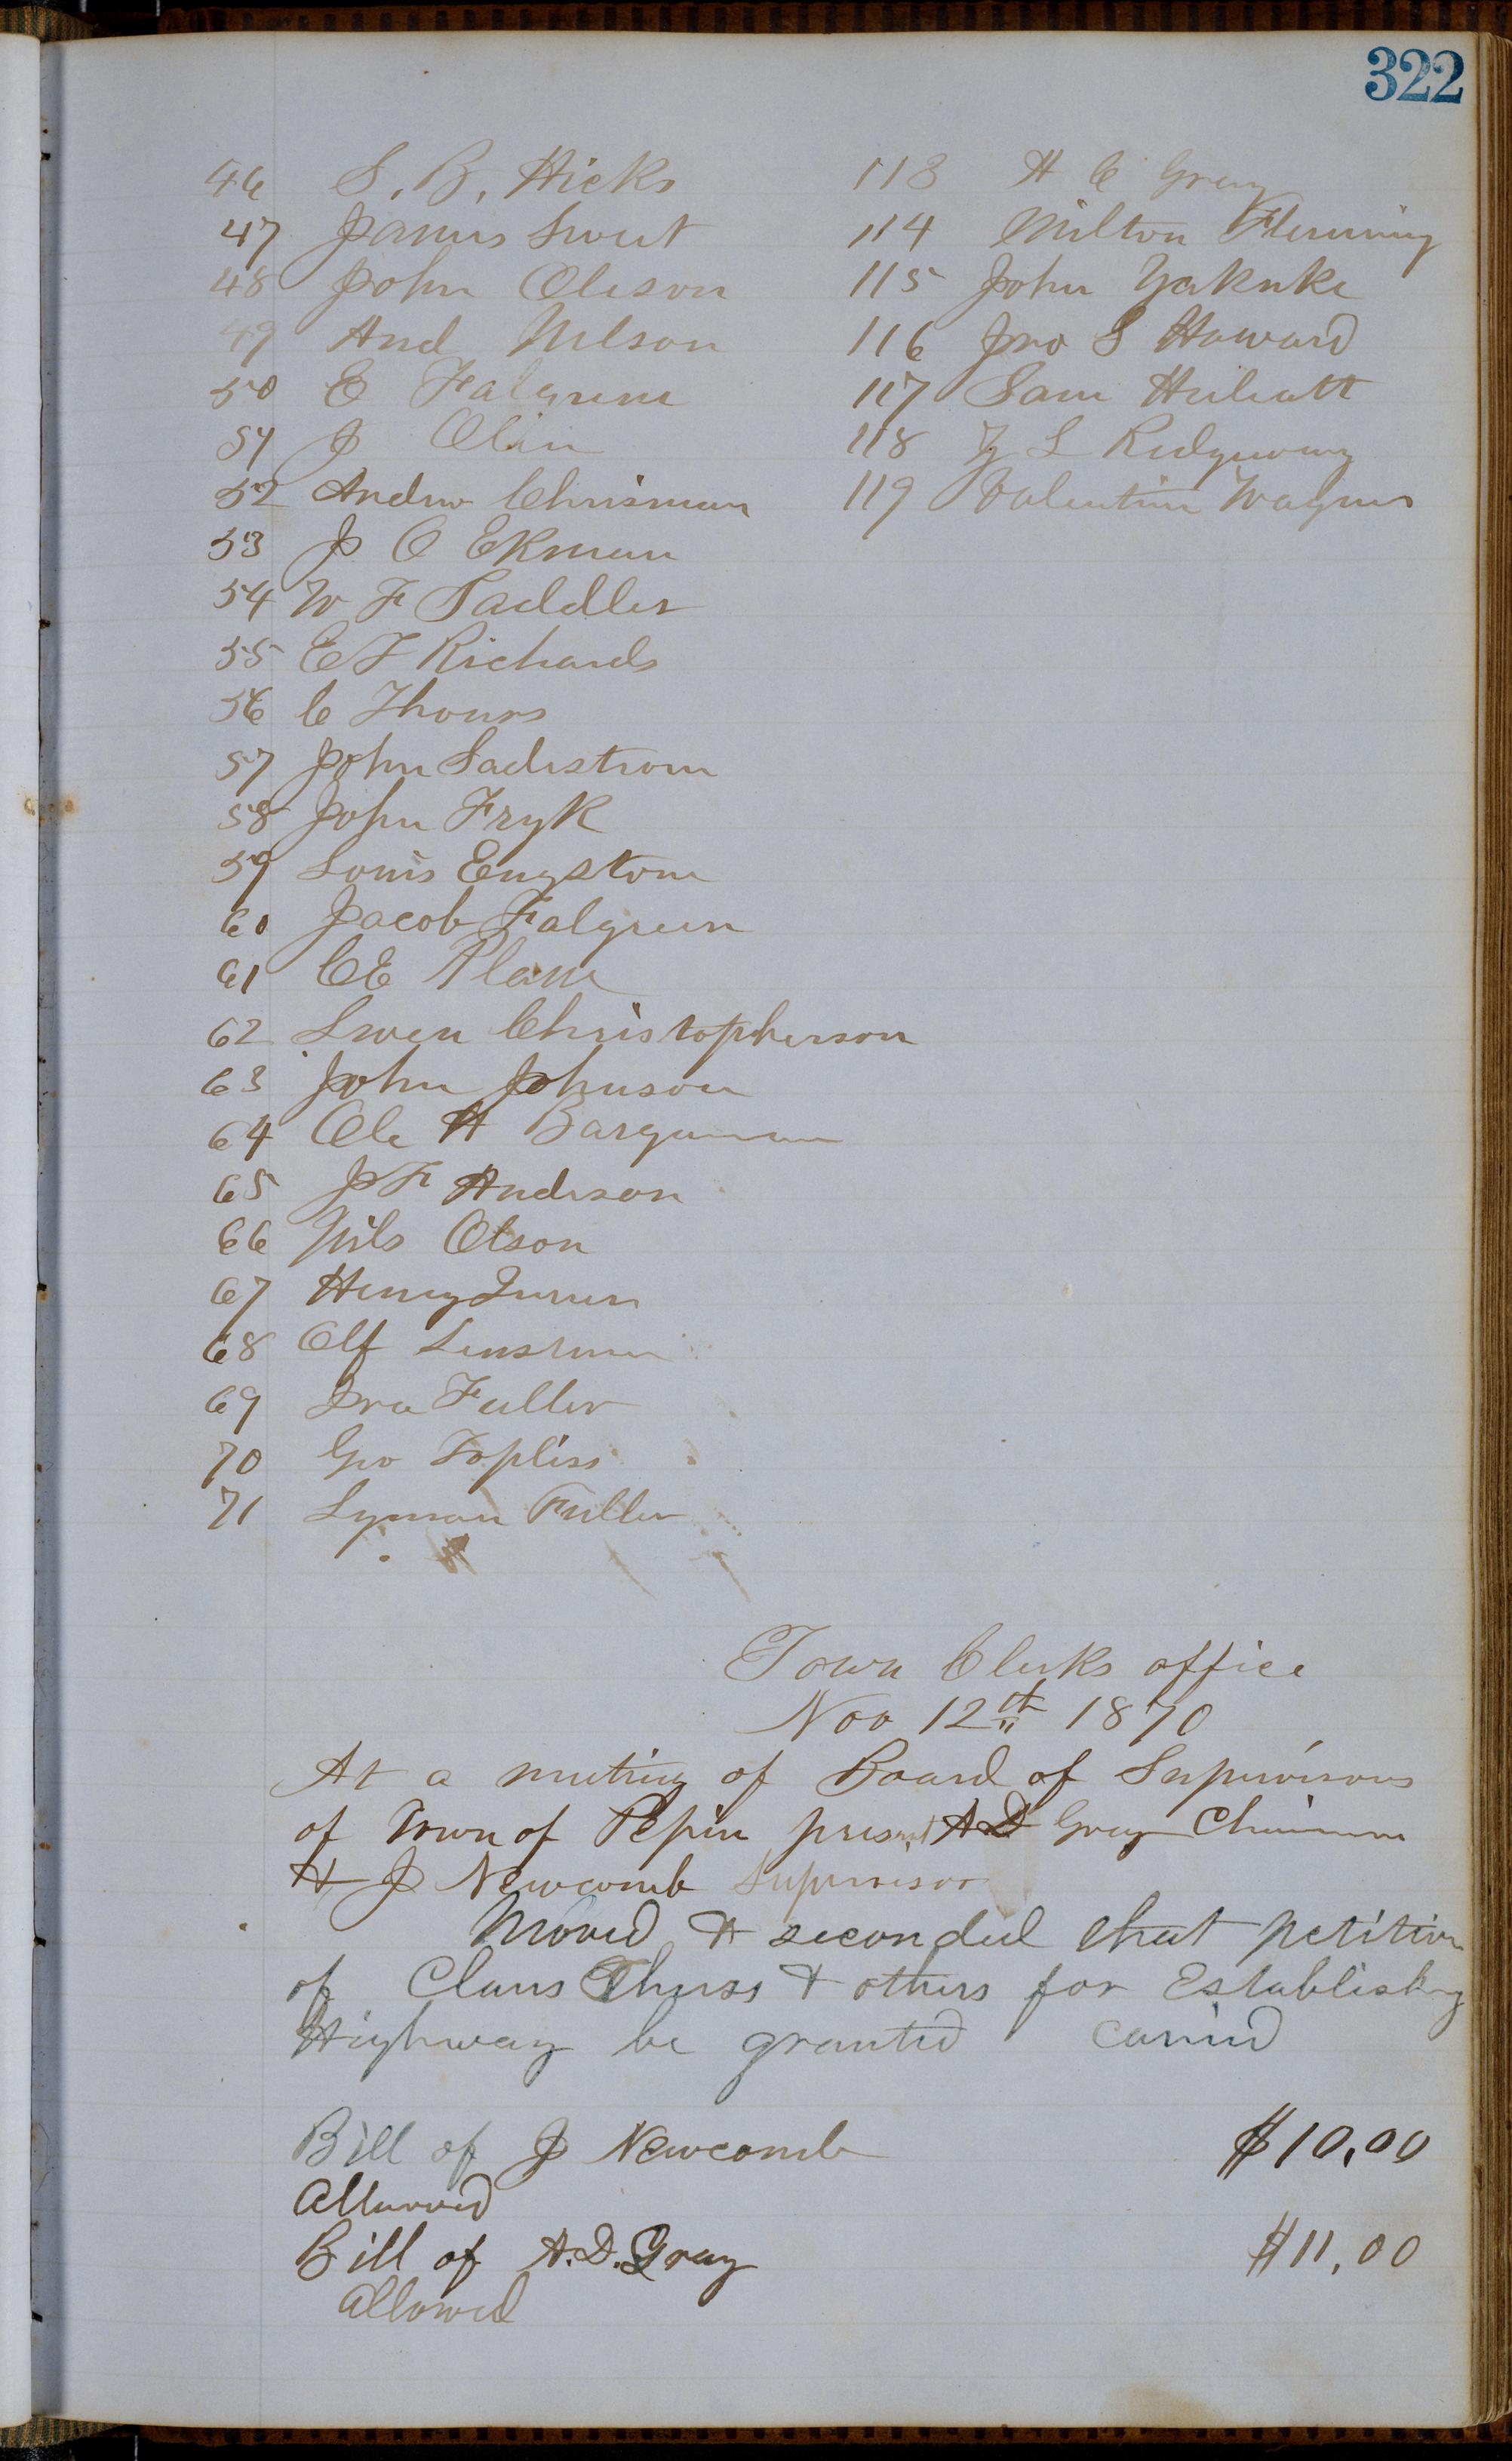 322
46 S. B. Hicks
47 James Sweet
48 John Oleson
49 And Nelson
50 E Falgren
51 J Olin
52 Andrew Chrisman
53 J O Ekman
54 W F Saddler
55 E F Richards
56 C Thours
57 John Saderstrom
58 John Fryk
59 Louis Engstom
60 Jacob Falgreen
61 CE Plam
62 Swen Christopherson
63 John Johnson
64 Ole H Bargaman
65 J F Anderson
66 Nils Olson
67 Henry
68 Olf
69 Ira Fuller
70 Geo Topliss
71 Lyman Fuller
113 H C Gray
114 Milton Flemming
115 John Yaknke
116 Jno S Howard
117 Sam Hulcatt
118 L Ridgeway
119 Valentine Wagner
Town Clerks office
Nov 12th 1870
At a meeting of Board of Supervisors
of Town of Pepin present A D Gray Chairman
& J Newcomb Supervisor
Moved & seconded that petition
of Claus Thurss & others for Establishing
Highway be granted carried
Bill of J Newcomb $10,00
Allowed
Bill of A. D. Gray $11,00
Allowed